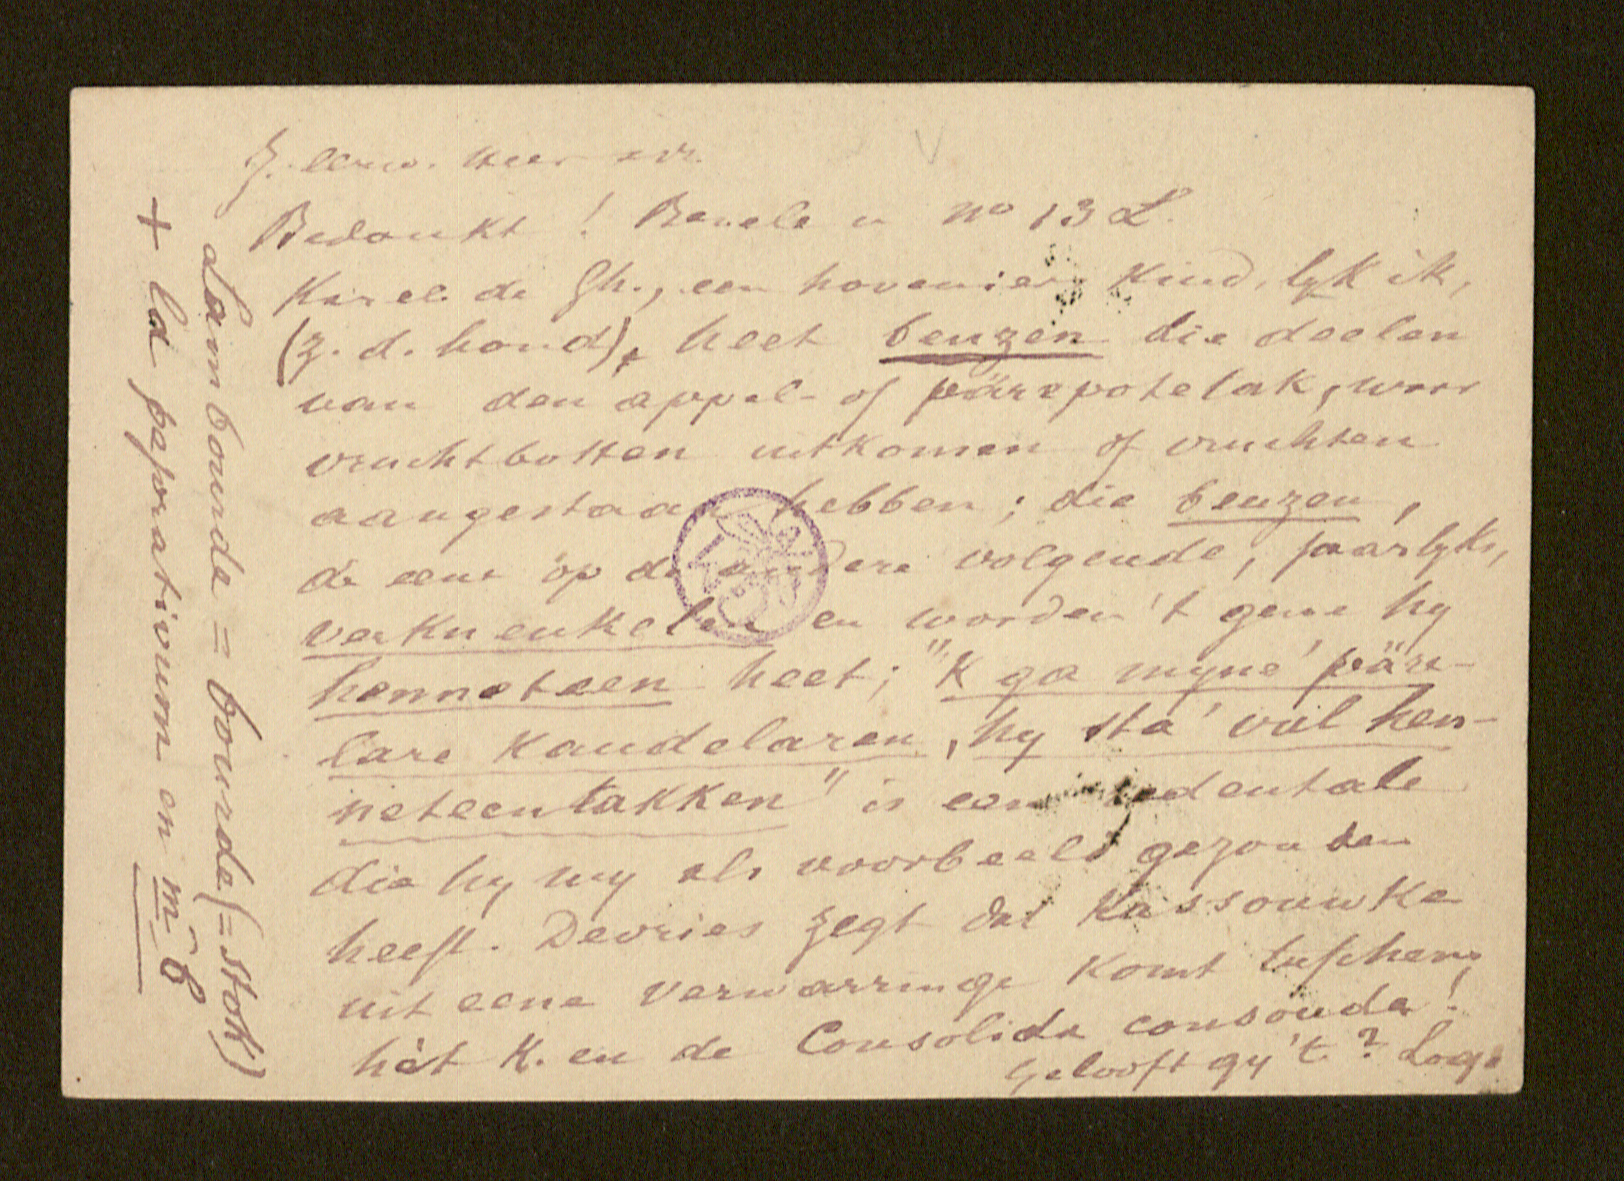 Z. eerw. Heer enz.
Bedankt! Benele in No 13 L.
Karel de Gh., een hoveniers kind, lyk ik,
(z. d. bond), heet beuzen die deelen
van den appel- of pärepotelak, waar
vruchtbotten uitkomen of vruchten
aangestaan hebben; die beuzen,
de eene op de andere volgende, jaarlyks,
verknenkelen en worden 't gene hy
henneteen heet; "'k ga myne' päre-
lare kandelaren, hy sta' vul hen-
neteentakken" is een
die hy my als voorbeeld gezonden
heeft. Devries zegt dat Kassouwke
uit eene verwarringe komt tusschen
hèt K. en de Consolida consouda!
Gelooft gy 't? Loq.
Lambourde = bourde (= stok)
+ la pejorativum en m̂b